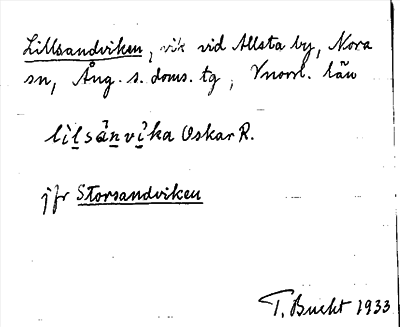 Lillsandviken, vik vid Allsta by, Nora
sn, Ång. s. doms. tg, Vnorrl. län
lilsánvika Oskar R.
jfr Storsandviken
T. Bucht 1933